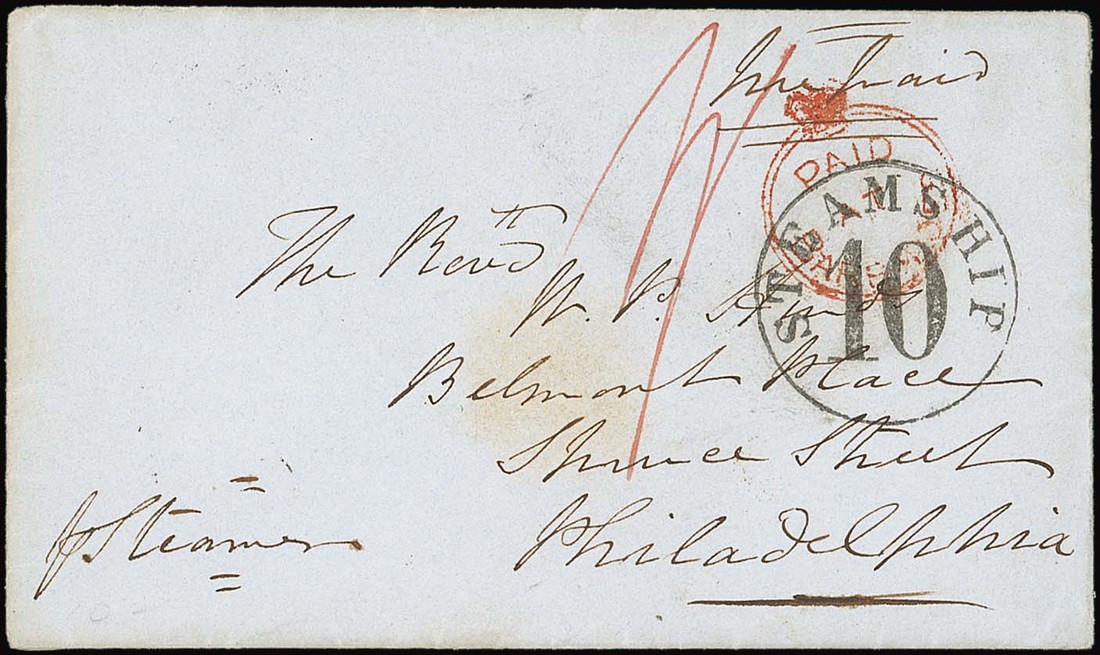 Pre paid
PAID
STEAMSHIP
10
The Revd
W. P.
Belmont Place
Spruce Street
Philadelphia
p Steamer